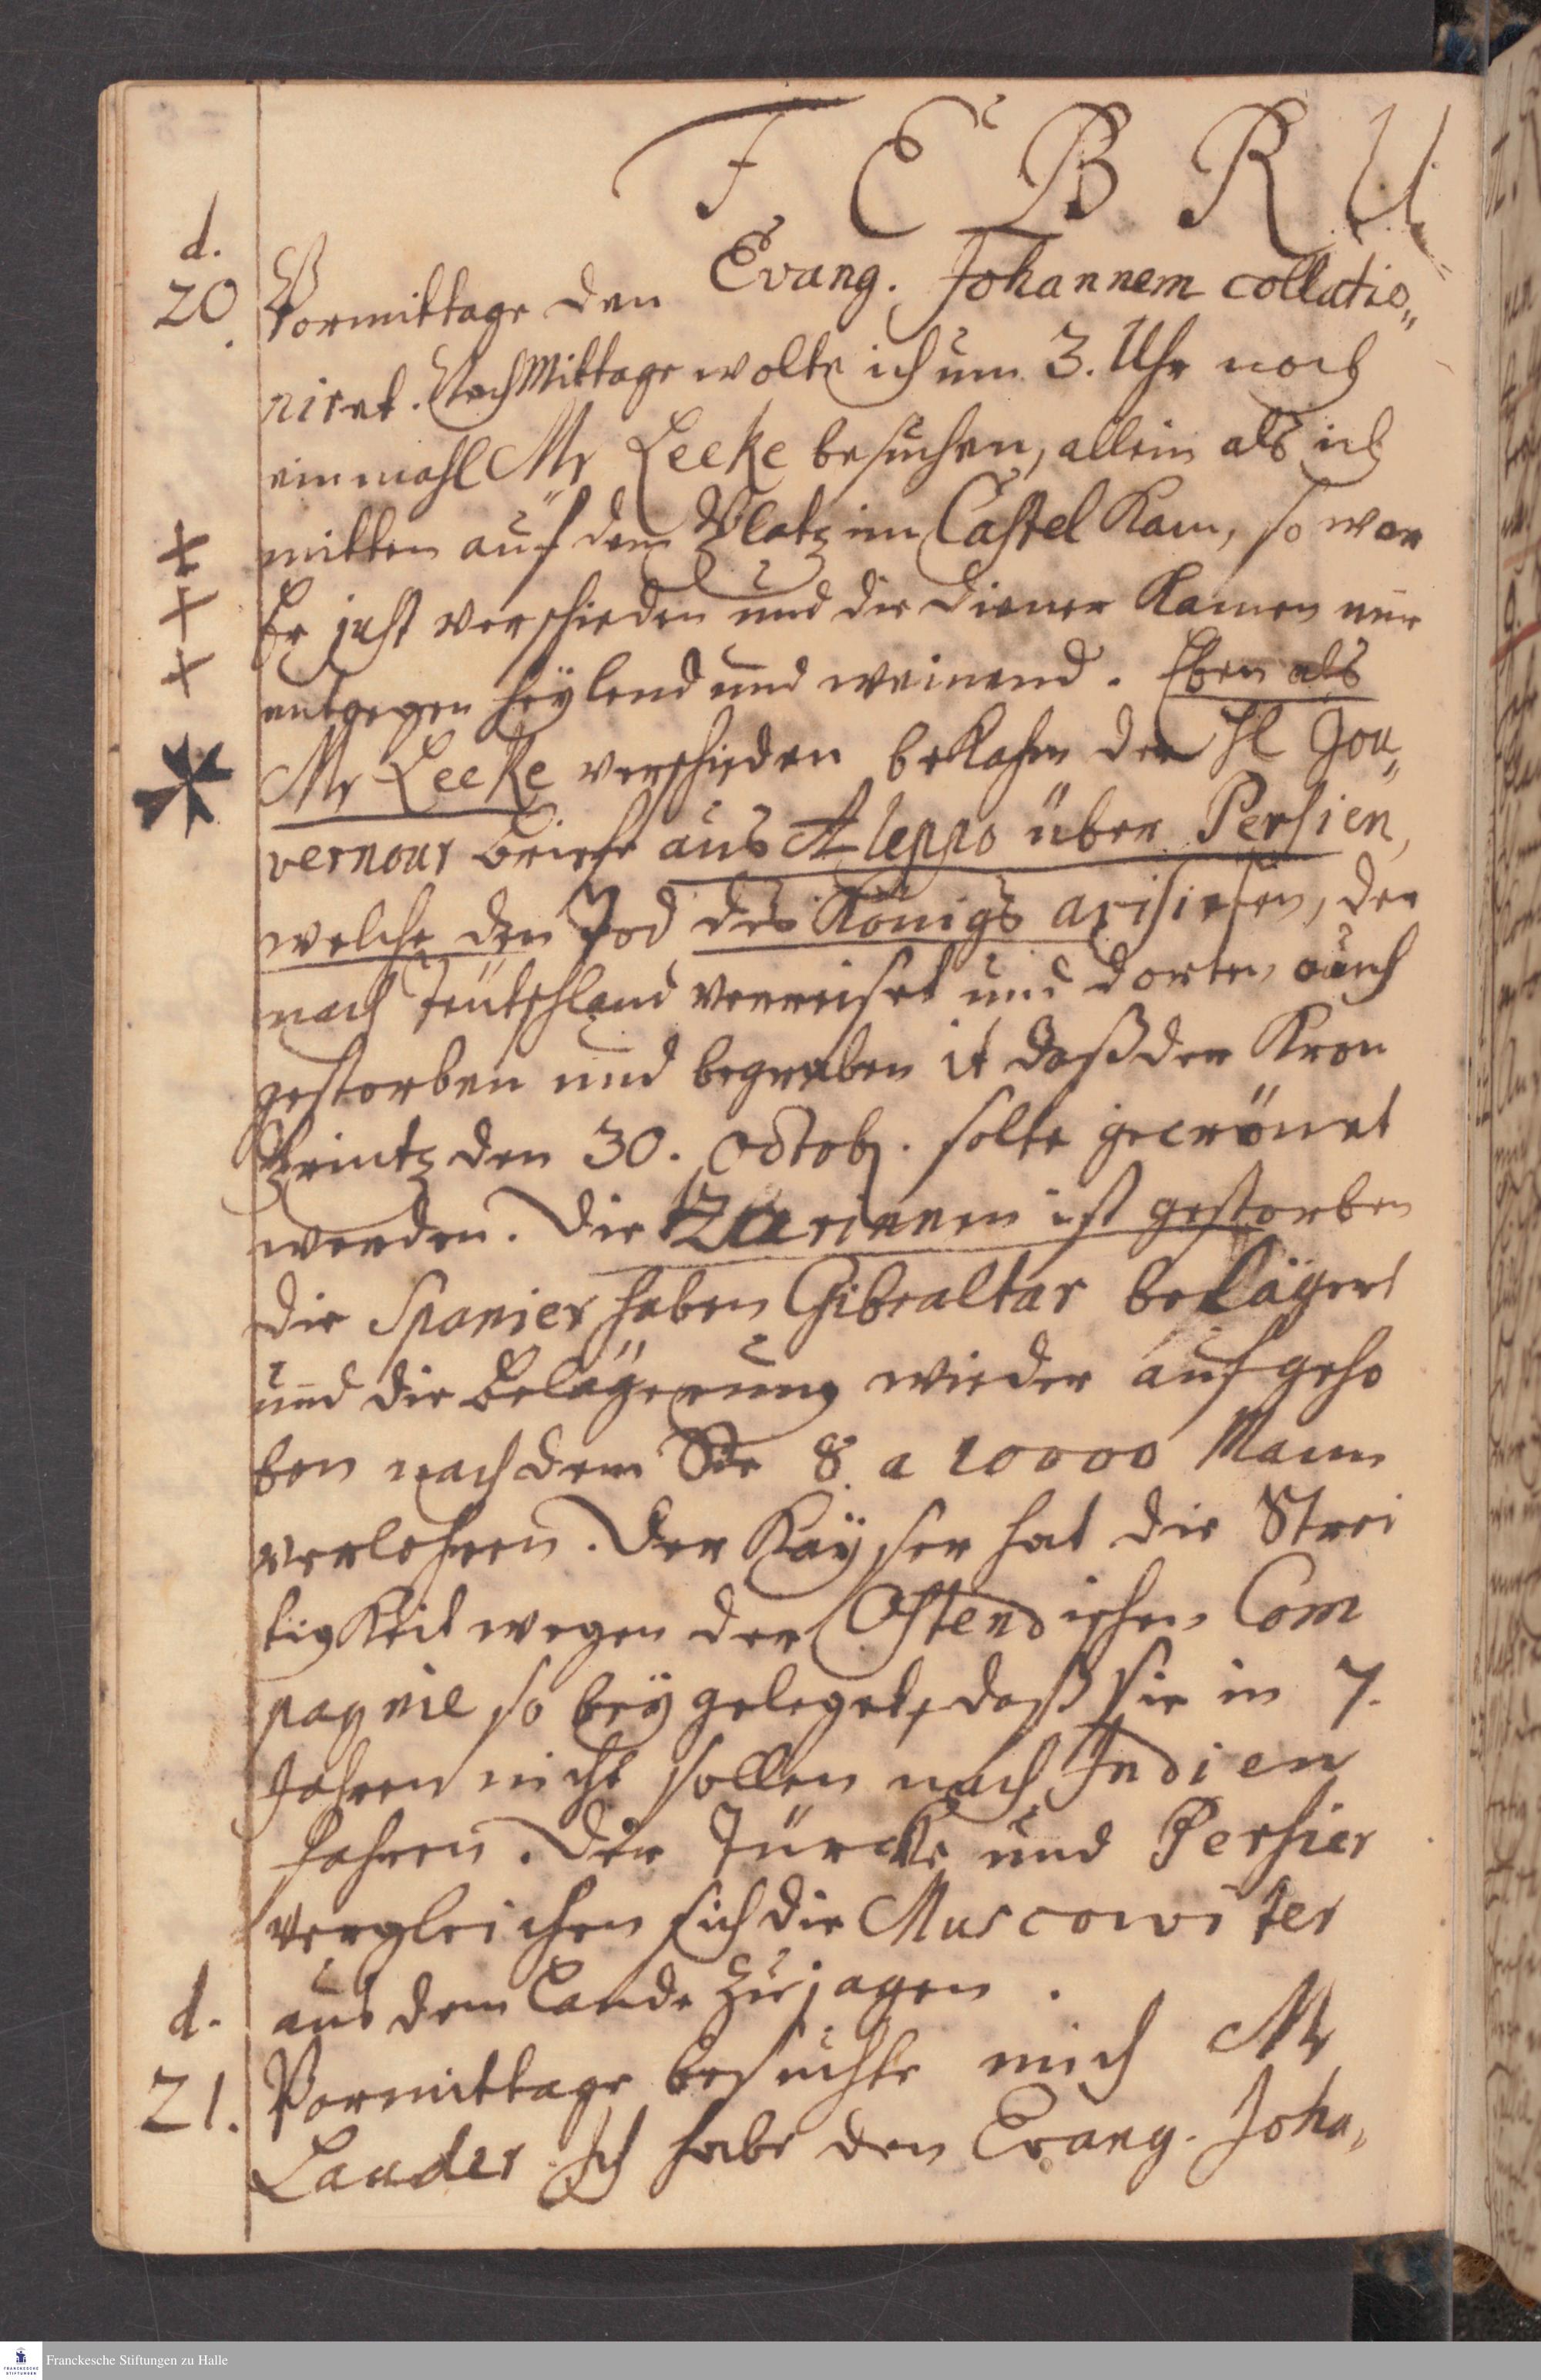 FEBRU
d. 20. Vormittage den Evang. Johannem collatio„
niret. NachMittage wolte ich um 3. Uhr noch
einmahl Mr Leeke besuchen, allein als ich
mitten auf dem Platz im Castel kam, so war
Er just verschieden und die Diener kamen mir
entgegen heÿlend und weinend. Eben als
Mr Leeke verschieden bekahm der H Gou„
verneur Briefe aus Aleppo über Persien,
welche den Tod des Königs avisirten, der
nach Teutschland verreiset und dorten auch
gestorben und begraben it daß der Kron
Printz den 30. Octob. solte gecrönet
werden. Die Czarinnen ist gestorben
die Spanier haben Gibraltar belägert
und die Belägerung wieder aufgeho
ben nachdem Sie 8 a 10000 Mann
verlohren. Der Kaÿser hat die Strei
tigkeit wegen der Ostendischen Com
pagnie so beÿgeleget, daß sie in 7.
Jahren nicht sollen nach Indien
fahren. Die Türcke und Persier
vergleichen sich die Muscowiter
aus dem Lande zu jagen.
d. 21. Vormittage besuchte mich Mr
Lauder. Ich habe den Evang. Joha„
Franckesche Stiftungen zu Halle